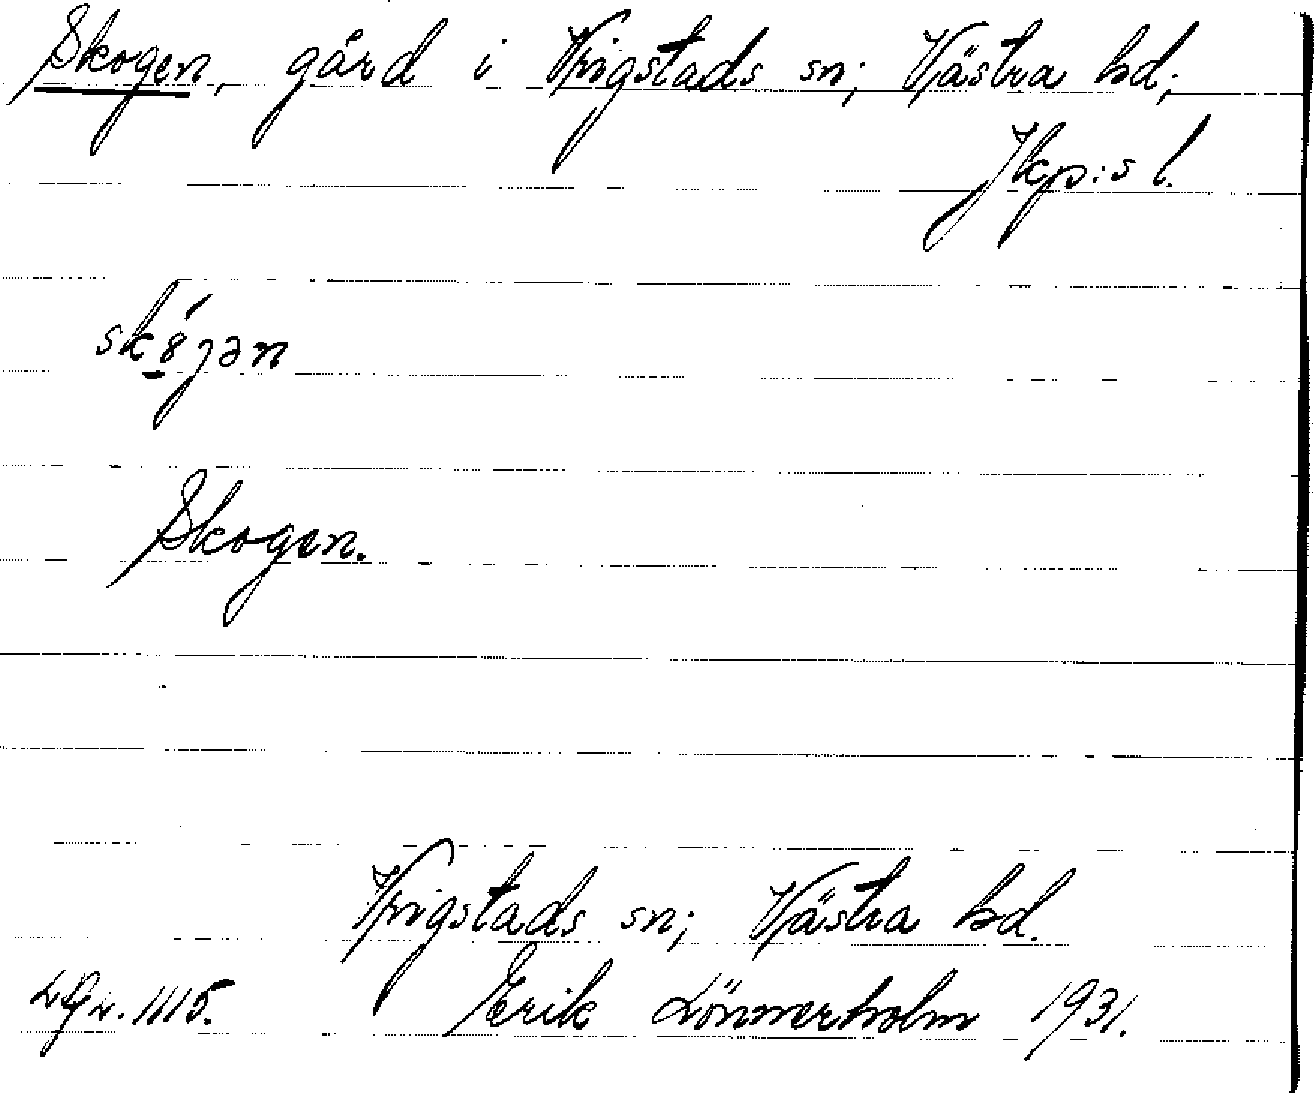 Skogen, gård i Vrigstads sn; Västra hd;
Jkp:s l.
Skogen.
Vrigstads sn; Västra hd.
1115. Erik Lönnerholm 1931.